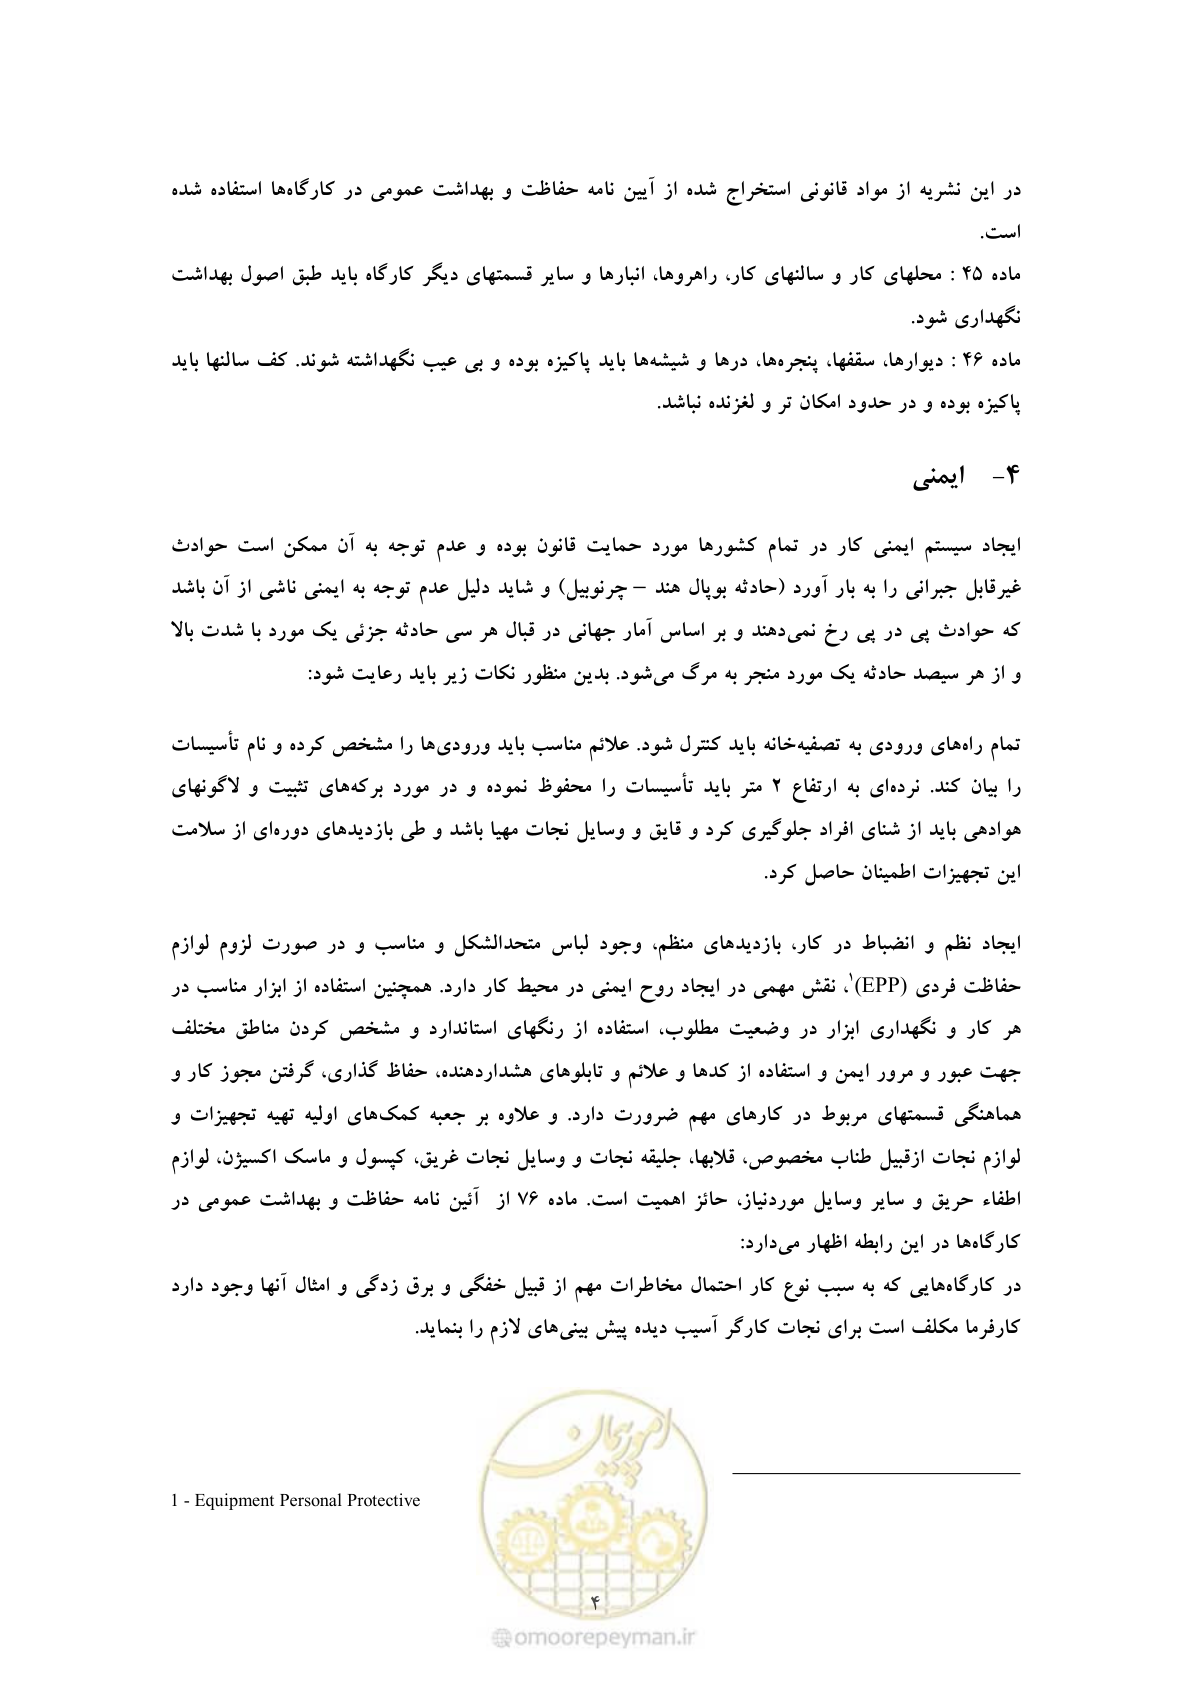 در این نشریه از مواد قانونی استخراج شده از آیین نامه حفاظت و بهداشت عمومی در کارگاه‌ها استفاده شده
است.
ماده ۴۵ : محلهای کار و سالنهای کار، راهروها، انبارها و سایر قسمتهای دیگر کارگاه باید طبق اصول بهداشت
نگهداری شود.
ماده ۴۶ : دیوارها، سقفها، پنجره‌ها، درها و شیشه‌ها باید پاکیزه بوده و بی عیب نگهداشته شوند. کف سالنها باید
پاکیزه بوده و در حدود امکان تر و لغزنده نباشد.
۴- ایمنی
ایجاد سیستم ایمنی کار در تمام کشورها مورد حمایت قانون بوده و عدم توجه به آن ممکن است حوادث
غیرقابل جبرانی را به بار آورد (حادثه بوپال هند – چرنوبیل) و شاید دلیل عدم توجه به ایمنی ناشی از آن باشد
که حوادث پی در پی رخ نمی‌دهند و بر اساس آمار جهانی در قبال هر سی حادثه جزئی یک مورد با شدت بالا
و از هر سیصد حادثه یک مورد منجر به مرگ می‌شود. بدین منظور نکات زیر باید رعایت شود:
تمام راه‌های ورودی به تصفیه‌خانه باید کنترل شود. علائم مناسب باید ورودی‌ها را مشخص کرده و نام تأسیسات
را بیان کند. نرده‌ای به ارتفاع ۲ متر باید تأسیسات را محفوظ نموده و در مورد برکه‌های تثبیت و لاگونهای
هوادهی باید از شنای افراد جلوگیری کرد و قایق و وسایل نجات مهیا باشد و طی بازدیدهای دوره‌ای از سلامت
این تجهیزات اطمینان حاصل کرد.
ایجاد نظم و انضباط در کار، بازدیدهای منظم، وجود لباس متحدالشکل و مناسب و در صورت لزوم لوازم
حفاظت فردی (EPP)۱، نقش مهمی در ایجاد روح ایمنی در محیط کار دارد. همچنین استفاده از ابزار مناسب در
هر کار و نگهداری ابزار در وضعیت مطلوب، استفاده از رنگهای استاندارد و مشخص کردن مناطق مختلف
جهت عبور و مرور ایمن و استفاده از کدها و علائم و تابلوهای هشداردهنده، حفاظ گذاری، گرفتن مجوز کار و
هماهنگی قسمتهای مربوط در کارهای مهم ضرورت دارد. و علاوه بر جعبه کمک‌های اولیه تهیه تجهیزات و
لوازم نجات ازقبیل طناب مخصوص، قلابها، جلیقه نجات و وسایل نجات غریق، کپسول و ماسک اکسیژن، لوازم
اطفاء حریق و سایر وسایل موردنیاز، حائز اهمیت است. ماده ۷۶ از آئین نامه حفاظت و بهداشت عمومی در
کارگاه‌ها در این رابطه اظهار می‌دارد:
در کارگاه‌هایی که به سبب نوع کار احتمال مخاطرات مهم از قبیل خفگی و برق زدگی و امثال آنها وجود دارد
کارفرما مکلف است برای نجات کارگر آسیب دیده پیش بینی‌های لازم را بنماید.
امور پیمان
1 - Equipment Personal Protective
۴
@omoorepeyman.ir